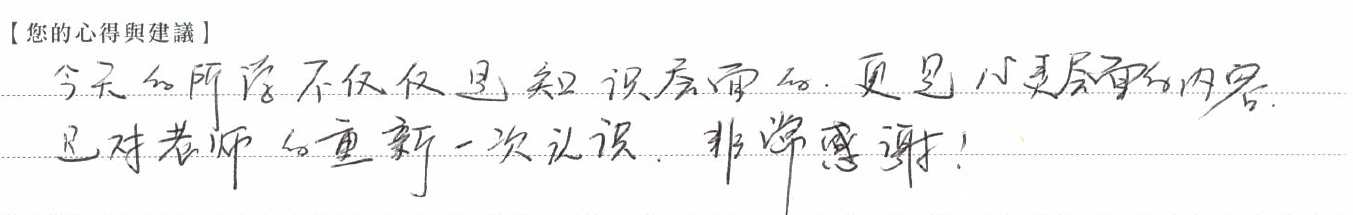 【您的心得與建議】
今天的所学不仅仅是知识层面的.更是心灵层面的内容.
是对老师的重新一次认识.非常感谢!